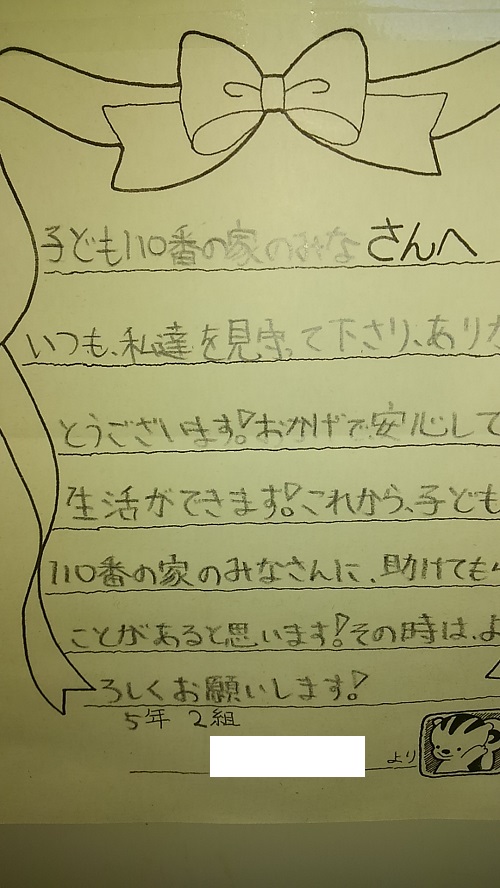 子ども110番の家のみなさんへ
いつも、私達を見守って下さり、ありが
とうございます!おかげで安心して
生活ができます!これから、子ども
110番の家のみなさんに、助けてもら
ことがあると思います!その時は、よ
ろしくお願いします!
5年 2組
より